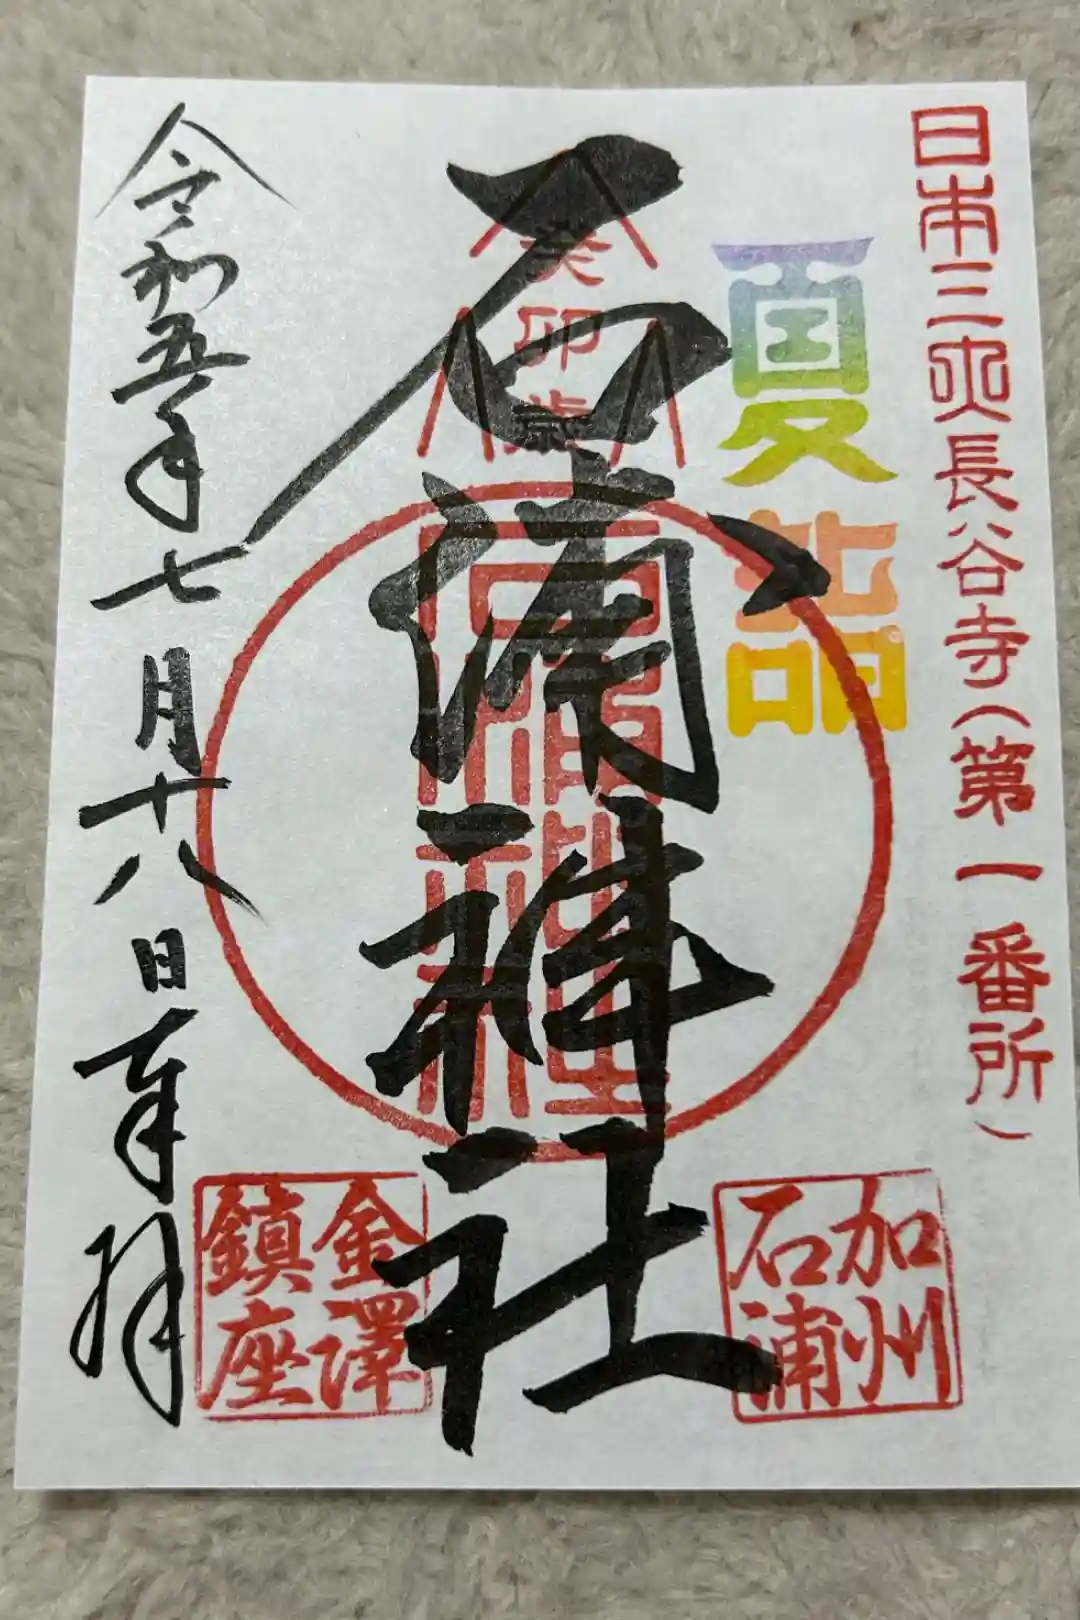 日本三大長谷寺(第一番所)
夏詣
加州
石浦
癸卯歳
石浦神社
石浦神社
金澤
鎮座
令和五年七月十八日奉拝